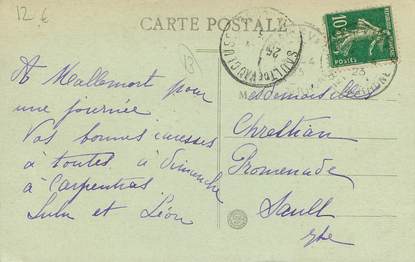 12 €
CARTE POSTALE
10c
POSTES
SAULT DE VAUCLUSE
25
23
13
A Mallemort pour
une journée
Vos bonnes caresses
a toutes, à Dimanche
à Carpentras
Lulu et Léon
Mesdemoiselles
Chrestian
Promenade
Sault